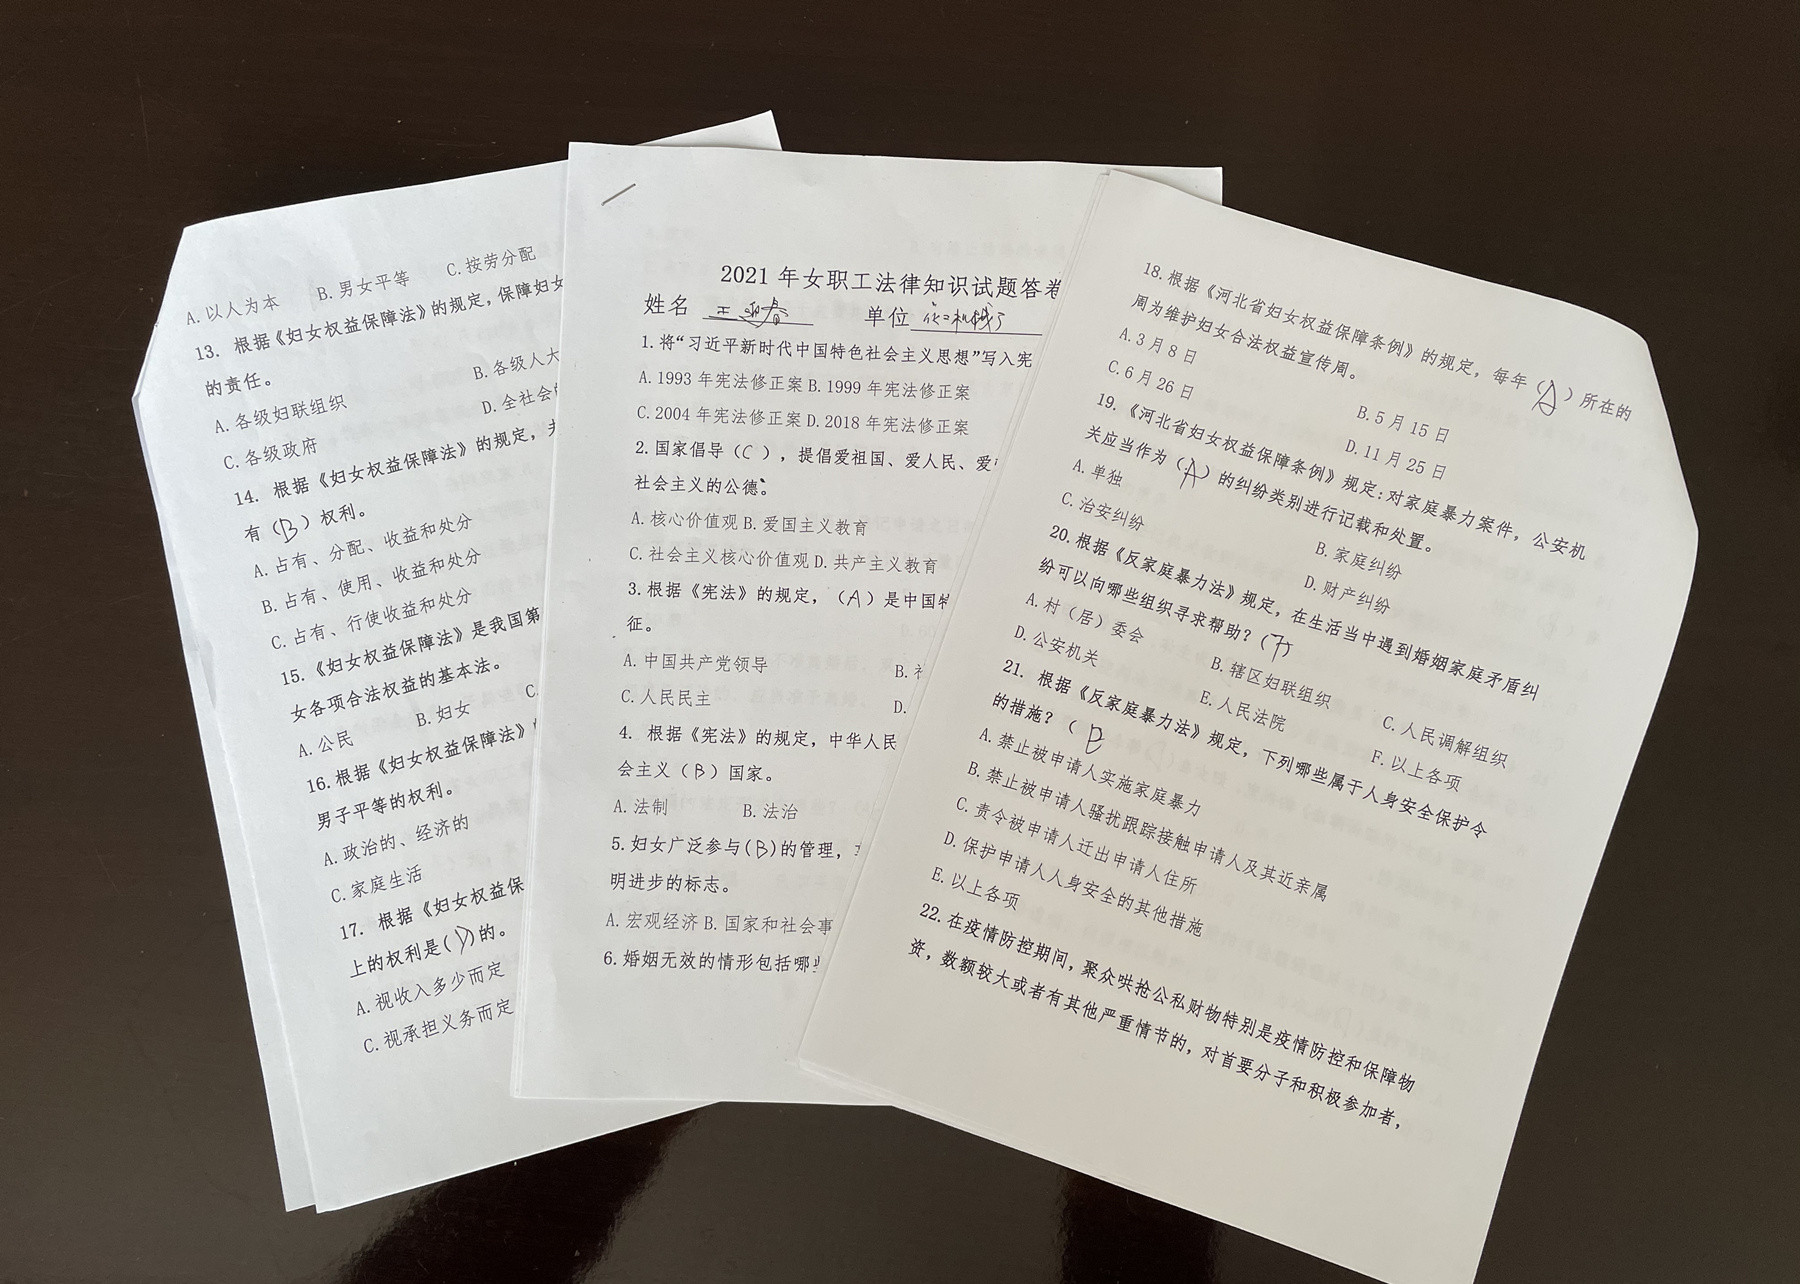 A.以人为本 B.男女平等 C.按劳分配
13. 根据《妇女权益保障法》的规定，保障妇女
的责任。
A.各级妇联组织 B.各级人大
C.各级政府 D.全社会
14. 根据《妇女权益保障法》的规定，
有（B）权利。
A.占有、分配、收益和处分
B.占有、使用、收益和处分
C.占有、行使收益和处分
15.《妇女权益保障法》是我国第
女各项合法权益的基本法。
A.公民 B.妇女 C.
16.根据《妇女权益保障法》
男子平等的权利。
A.政治的、经济的
C.家庭生活
17. 根据《妇女权益保
上的权利是(D)的。
A.视收入多少而定
C.视承担义务而定
2021 年女职工法律知识试题答卷
姓名 王迎春 单位
1.将“习近平新时代中国特色社会主义思想”写入宪
A.1993 年宪法修正案 B.1999 年宪法修正案
C.2004 年宪法修正案 D.2018 年宪法修正案
2.国家倡导（C），提倡爱祖国、爱人民、爱
社会主义的公德。
A.核心价值观 B.爱国主义教育
C.社会主义核心价值观 D.共产主义教育
3.根据《宪法》的规定，（A）是中国特
征。
A.中国共产党领导 B.
C.人民民主 D.
4. 根据《宪法》的规定，中华人民
会主义（B）国家。
A.法制 B.法治
5.妇女广泛参与(B)的管理，
明进步的标志。
A.宏观经济 B.国家和社会事
6.婚姻无效的情形包括哪些
18.根据《河北省妇女权益保障条例》的规定，每年（A）所在的
周为维护妇女合法权益宣传周。
A.3 月 8 日 B.5 月 15 日
C.6 月 26 日 D.11 月 25 日
19.《河北省妇女权益保障条例》规定:对家庭暴力案件，公安机
关应当作为（A）的纠纷类别进行记载和处置。
A.单独 B.家庭纠纷
C.治安纠纷 D.财产纠纷
20.根据《反家庭暴力法》规定，在生活当中遇到婚姻家庭矛盾纠
纷可以向哪些组织寻求帮助？（F）
A.村（居）委会 B.辖区妇联组织 C.人民调解组织
D.公安机关 E.人民法院 F.以上各项
21. 根据《反家庭暴力法》规定，下列哪些属于人身安全保护令
的措施？（
A.禁止被申请人实施家庭暴力
B.禁止被申请人骚扰跟踪接触申请人及其近亲属
C.责令被申请人迁出申请人住所
D.保护申请人人身安全的其他措施
E.以上各项
22.在疫情防控期间，聚众哄抢公私财物特别是疫情防控和保障物
资，数额较大或者有其他严重情节的，对首要分子和积极参加者，